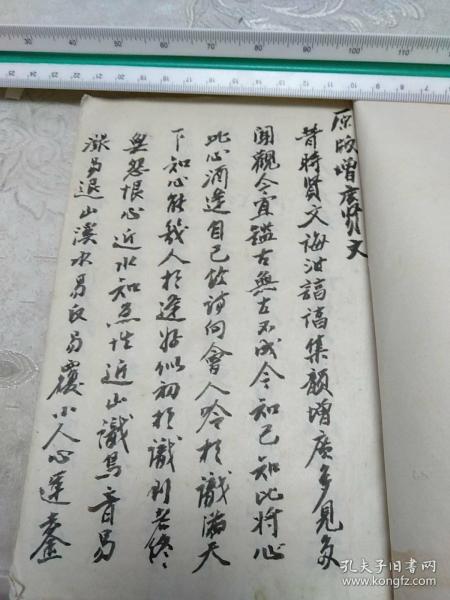 原版增广贤文
昔時賢文诲汝諄諄集韻增廣多見多
闻觀今宜鑑古無古不成今知己知此將心
比心酒逢自己饮詩向會人吟相識满天
下知心能幾人相逢好似初相識到老终
無怨恨心近水知魚性近山識鸟音易
漲易退山溪水易反易覆小人心運去金
孔夫子旧书网
www.kongfz.com